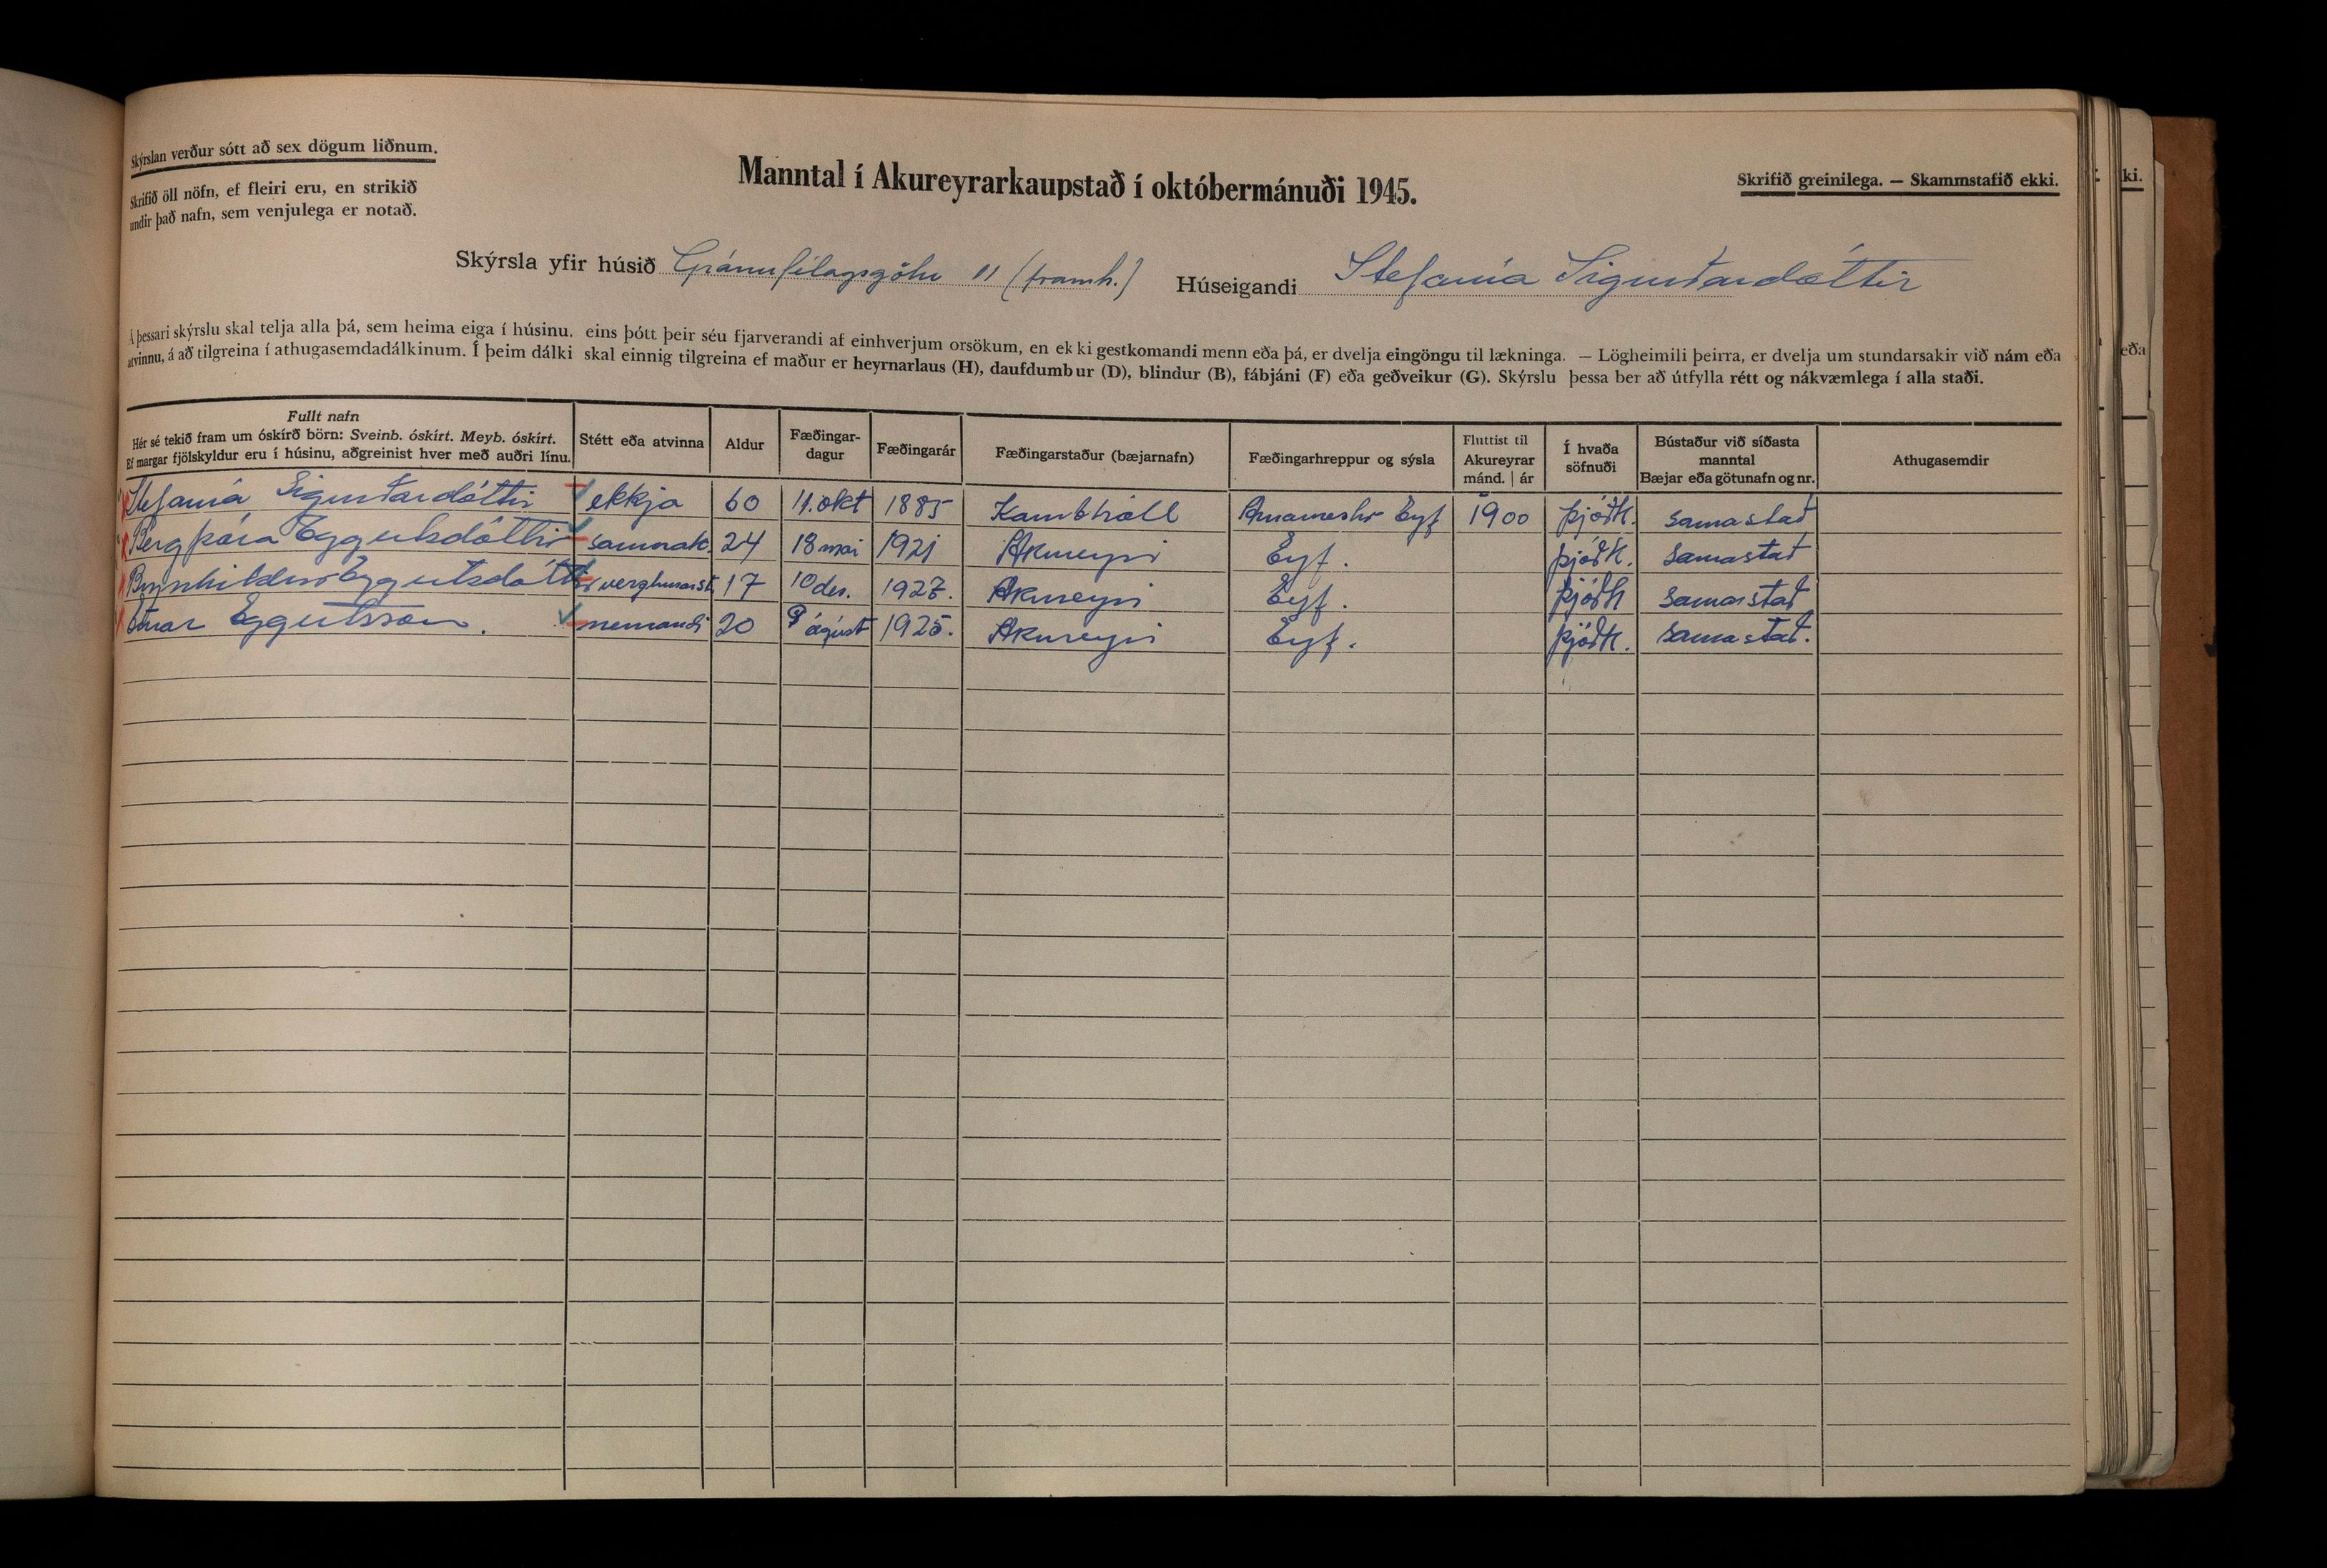 Skýrslan verður sótt að sex dögum liðnum.
Skrifið öll nöfn, ef fleiri eru, en strikið
undir það nafn, sem venjulega er notað.
Manntal í Akureyrarkaupstað í októbermánuði 1945.
Skrifið greinilega. — Skammstafið ekki.
Skýrsla yfir húsið Gránufélagsgötu 11 (framh.) Húseigandi Stefanía Sigurðardóttir
Á þessari skýrslu skal telja alla þá, sem heima eiga í húsinu, eins þótt þeir séu fjarverandi af einhverjum orsökum, en ekki gestkomandi menn eða þá, er dvelja eingöngu til lækninga. — Lögheimili þeirra, er dvelja um stundarsakir við nám eða
atvinnu, á að tilgreina í athugasemdadálkinum. Í þeim dálki skal einnig tilgreina ef maður er heyrnarlaus (H), daufdumbur (D), blindur (B), fábjáni (F) eða geðveikur (G). Skýrslu þessa ber að útfylla rétt og nákvæmlega í alla staði.
Fullt nafn
Hér sé tekið fram um óskírð börn: Sveinb. óskírt. Meyb. óskírt.
Ef margar fjölskyldur eru í húsinu, aðgreinist hver með auðri línu.
Stétt eða atvinna
Aldur
Fæðingar-
dagur
Fæðingarár
Fæðingarstaður (bæjarnafn)
Fæðingarhreppur og sýsla
Fluttist til
Akureyrar
mánd. | ár
Í hvaða
söfnuði
Bústaður við síðasta
manntal
Bæjar eða götunafn og nr.
Athugasemdir
Stefanía Sigurðardóttir ekkja 60 11. okt 1885 Kambhóll Eyf 1900 þjóðk. sama stað
Bergþóra Eggertsdóttir saumak. 24 18 mai 1921 Akureyri Eyf. þjóðk. sama stað
Brynhildur Eggertsdóttir 17 10 des. Akureyri Eyf. þjóðk sama stað
Eggertsson. nemandi 20 ágúst 1925. Akureyri Eyf. þjóðk. sama stað.
ki.
eða